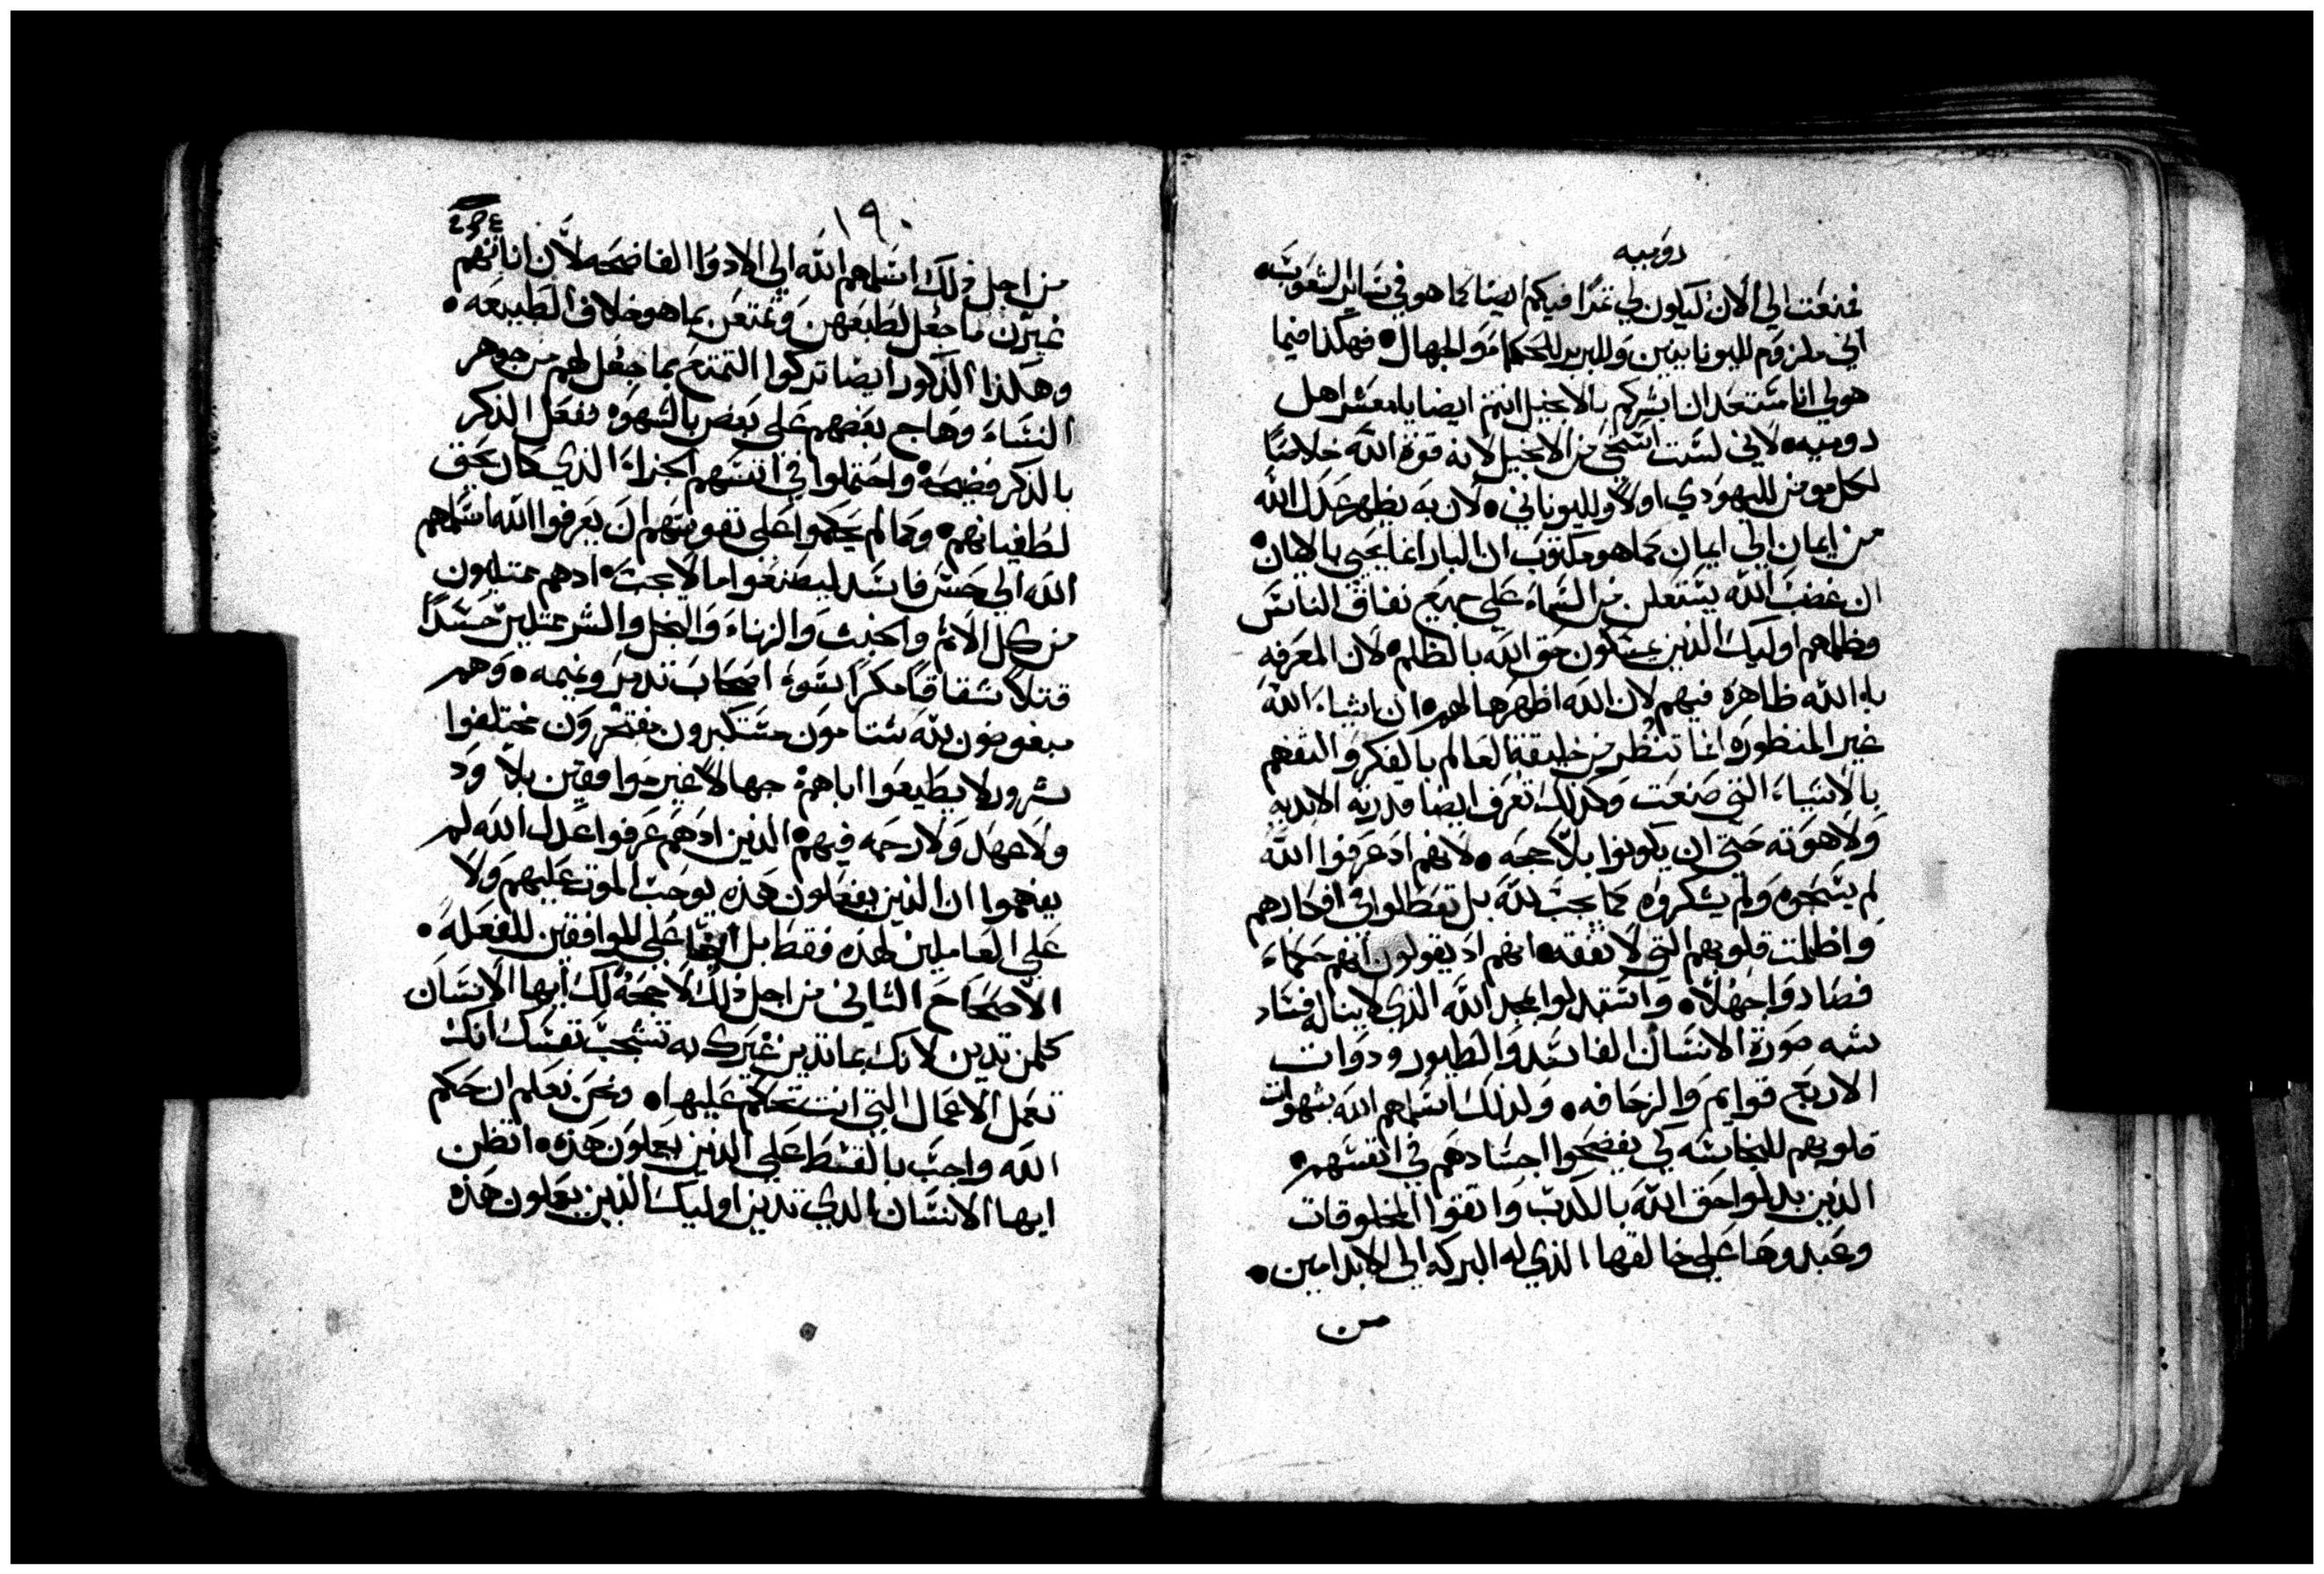 روميه
فمنعت الي الان ليكون لي ثمرًا فيكم ايضا كما هو في ساير الشعوب
اني ملزوم لليونانيين وللبربر للحكما وللجهال فهكذا فيما
هو لي انا مستعد ان ابشركم بالانجيل انتم ايضا يا معشر اهل
روميه لاني لست استحي من الانجيل لانه قوة الله خلاصًا
لكل مومن لليهودي اولًا ولليوناني لان به يظهر عدل الله
من ايمان الي ايمان كما هو مكتوب ان البار انما يحيى بالايمان
ان غضب الله يستعلن من السماء علي جميع نفاق الناس
وظلمهم اوليك الذين يمسكون حق الله بالظلم لان المعرفه
بالله ظاهرة فيهم لان الله اظهرها لهم ان اشياء الله
غير المنظورة انما تنظر من خليقة العالم بالفكر والتفهم
بالاشياء التي صنعت وكذلك تعرف ايضا قدرته الابديه
ولاهوته حتي ان يكونوا بلا حجه لانهم اد عرفوا الله
لم يمجدوه ولم يشكروه كما يجب لله بل تعطلوا في افكارهم
واظلمت قلوبهم التي لا تفقه انهم اد يقولون انهم حكماء
فصاروا جهلًا واستبدلوا مجد الله الذي لا يناله فساد
بشبه صورة الانسان الفاسد والطيور ودوات
الاربع قوايم والزحافه ولذلك اسلمهم الله بشهوات
قلوبهم للنجاسه كي يفضحوا اجسادهم في انفسهم
الذين بدلوا حق الله بالكدب واتقوا المخلوقات
وعبدوها علي خالقها الذي له البركه الي الابد امين
من
١٩٠
من اجل ذلك اسلمهم الله الي الادوا الفاضحه لان اناثهم
غيرن ما جعل لطبعهن وتمتعن بما هو خلاف الطبيعه
وهكذا الذكور ايضا تركوا التمتع بما جعل لهم من جوهر
النساء وهاج بعضهم علي بعض بالشهوه يفعل الذكر
بالذكر فضيحة واحتملوا في انفسهم الجزاء الذي كان يحق
لطغيانهم وكما لم يحكموا علي نفوسهم ان يعرفوا الله اسلمهم
الله الي حس فاسد ليصنعوا ما لا يجب ادهم ممتليون
من كل الاثم والخبث والزناء والبخل والشر ممتلين حسدًا
قتلًا شقاقًا مكرًا سوء اصحاب تدمر ونميمه وهم
مبغوضون لله شتامون مستكبرون مفتخرون مختلفوا
شرور لا يطيعوا اباهم جهالًا غير موافقين بلا ود
ولا عهد ولا رحمه فيهم الذين ادهم عرفوا عدل الله لم
يفهموا ان الذين يفعلون هذه يوجب الموت عليهم ولا
علي العاملين لهذه فقط بل ايضا علي الموافقين للفعله
الاصحاح الثاني من اجل ذلك لا حجة لك ايها الانسان
كلمن تدين لانك بما تدين غيرك به تشجب نفسك انك
تعمل الاعمال التي انت تحكم عليها ونحن نعلم ان حكم
الله واجب بالقسط علي الذين يعملون هذه اتظن
ايها الانسان الدي تدين اوليك الذين يعملون هذه